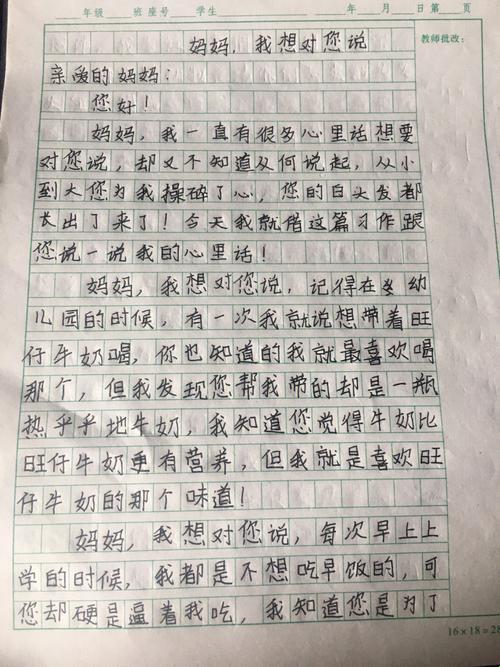 年级 班座号 学生 年 月 日第 页
妈妈，我想对您说
教师批改：
亲爱的妈妈：
您好！
妈妈，我一直有很多心里话想要
对您说，却又不知道从何说起，从小
到大您为我操碎了心，您的白头发都
长出了来了！今天我就借这篇习作跟
您说一说我的心里话！
妈妈，我想对您说，记得在上幼
儿园的时候，有一次我就说想带着旺
仔牛奶喝，你也知道的我就最喜欢喝
那个，但我发现您帮我带的却是一瓶
热乎乎地牛奶，我知道您觉得牛奶比
旺仔牛奶更有营养，但我就是喜欢旺
仔牛奶的那个味道！
妈妈，我想对您说，每次早上上
学的时候，我都是不想吃早饭的，可
您却硬是逼着我吃，我知道您是为了
16×18=28